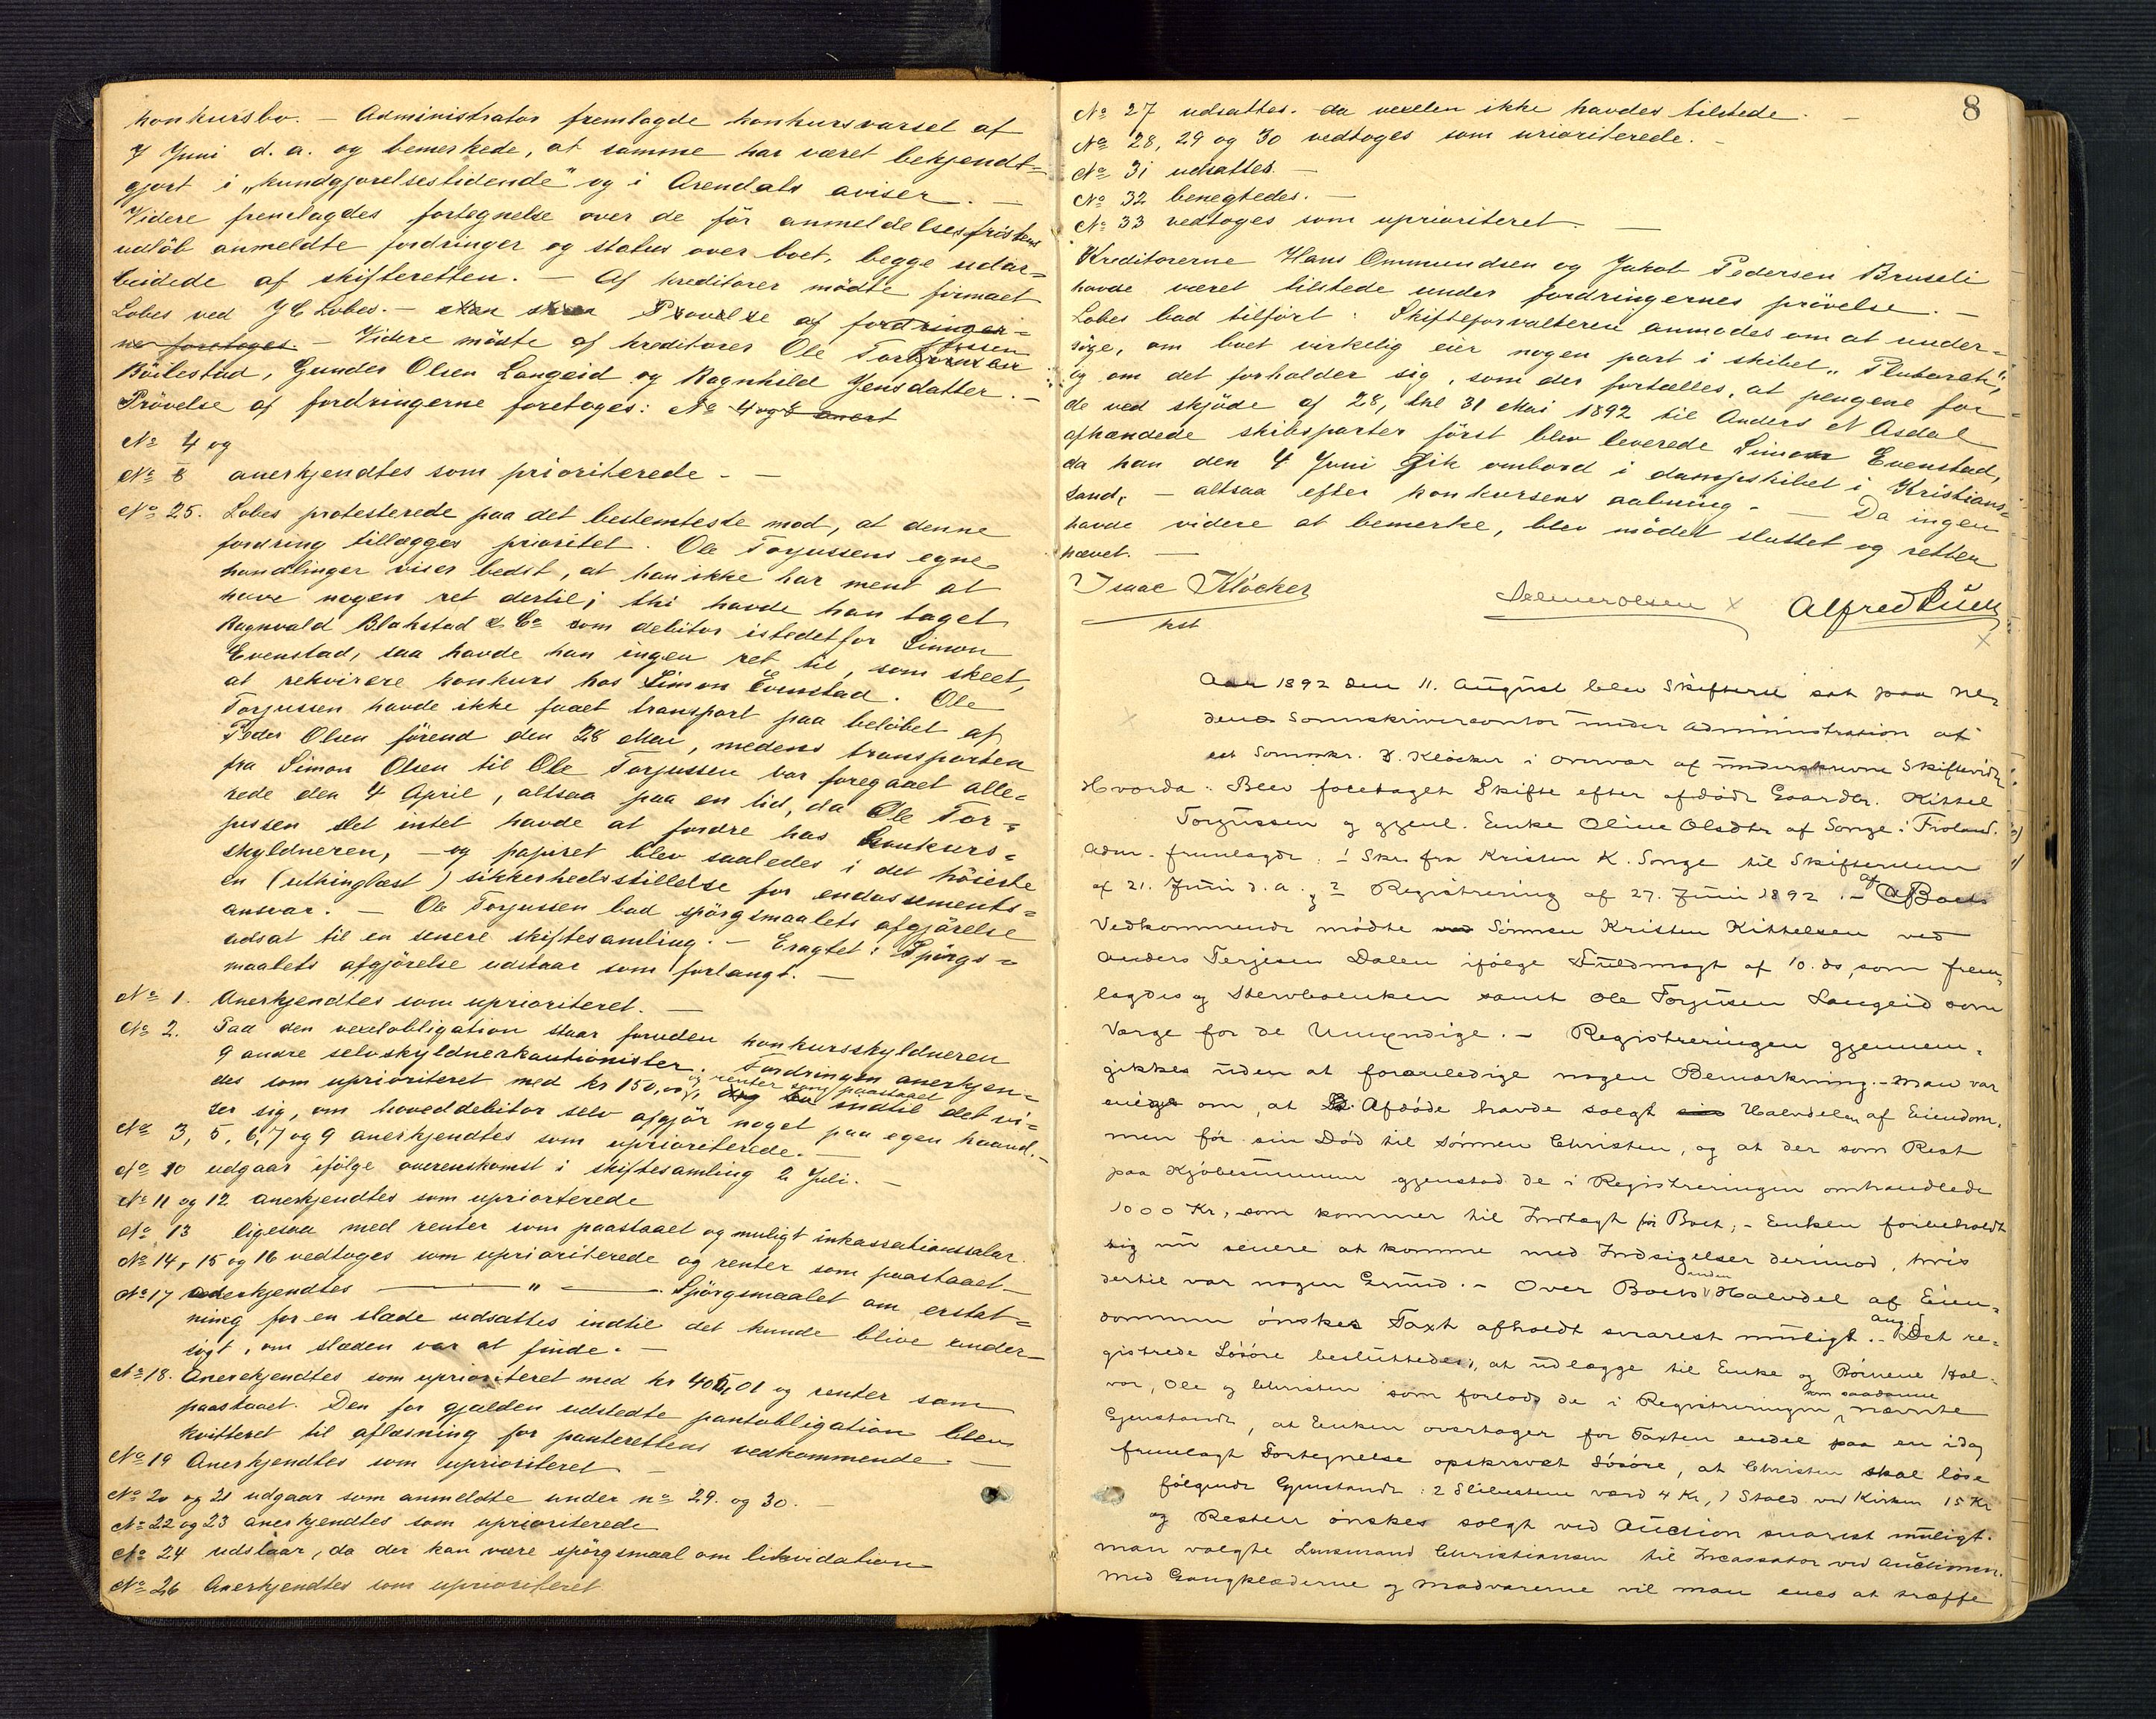 konkursbo. – Administrator fremlagde konkursvarsel af
7 Juni d.a. og bemerkede, at samme har været bekjendt=
gjort i „kundgjørelsestidende" og i Arendals aviser. –
Videre fremlagdes fortegnelse over de för anmeldelsesfristens
udlöb anmeldte fordringer og status over boet, begge udar=
beidede af skifteretten. – Af kreditorer mödte firmaet
Lobes ved J E Lobes. – Prövelse af fordringer=
ne foretoges. – Videre mödte af kreditorer Ole Torjussen
Böilestad, Gunder Olsen Langeid og Ragnhild Jensdatter. –
Prövelse af fordringerne foretoges: No 4 og 8 anerk
No 4 og
No 8 anerkjendtes som prioriterede. –
No 25. Lobes protesterede paa det bestemteste mod, at denne
fordring tillægges prioritet. Ole Torjussens egne
handlinger viser bedst, at han ikke har ment at
have nogen ret dertil; thi havde han taget
Ragnvald Blakstad & Co som debitor istedetfor Simon
Evenstad, saa havde han ingen ret til, som skeet,
at rekvirere konkurs hos Simon Evenstad. Ole
Torjussen havde ikke faaet transport paa belöbet af
Peder Olsen förend den 28 Mai, medens transporten
fra Simon Olsen til Ole Torjussen var foregaaet alle=
rede den 4 April, altsaa paa en tid, da Ole Tor=
jussen slet intet havde at fordre hos konkurs=
skyldneren, – og papiret blev saaledes i det höieste
en (uthinglæst) sikkerhedsstillelse for endossements=
ansvar. – Ole Torjussen bad spörgsmaalets afgjörelse
udsat til en senere skiftesamling. – Eragtet: Spörgs=
maalets afgjörelse udstaar som forlangt. –
No 1. Anerkjendtes som uprioriteret. –
No 2. Paa den vexelobligation staar foruden konkursskyldneren
9 andre selvskyldnerkautionister. Fordringen anerkjen=
des som uprioriteret med kr 150,00, og renter som paastaaet indtil det vi=
ser sig, om hoveddebitor selv afgjör noget paa egen haand. –
No 3, 5, 6, 7 og 9 anerkjendtes som uprioriterede. –
No 10 udgaar ifölge overenskomst i skiftesamling 2 Juli. –
No 11 og 12 anerkjendtes som upriorterede
No 13 ligesaa med renter som paastaaet og muligt inkassationssalær.
No 14, 15 og 16 vedtoges som uprioriterede og renter som paastaaet –
No 17 anerkjendtes — " — . Spörgsmaalet om erstat=
ning for en slæde udsattes indtil det kunde blive under=
sögt, om slæden var at finde. –
No 18. Anerkjendtes som uprioriteret med kr 405,01 og renter som
paastaaet. Den for gjælden udstedte pantobligation blev
kvitteret til aflæsning for panterettens vedkommende. –
No 19 Anerkjendtes som uprioriteret –
No 20 og 21 udgaar som anmeldte under no 29. og 30. –
No 22 og 23 anerkjendtes som uprioriterede
No 24 udstaar, da der kan være spörgsmaal om likvidation
No 26 Anerkjendtes som uprioriteret
8
No 27 udsattes. da vexelen ikke havdes tilstede. –
No 28, 29 og 30 vedtoges som urioriterede. –
No 31 udsattes. –
No 32 benegtedes. –
No 33 vedtoges som uprioriteret. –
Kreditorerne Hans Ommundsen og Jakob Pedersen Bruseli
havde været tilstede under fordringernes prövelse. –
Lobes bad tilfört: Skifteforvalteren anmodes om at under=
söge, om boet virkelig eier nogen part i skibet „Plutarch",
og om det forholder sig, som der fortælles, at pengene for
de ved skjöde af 28, tnl 31 Mai 1892 til Anders N Asdal
afhændede skibsparter först blev leverede Simon Evenstad,
da han den 4 Juni gik ombord i dampskibet i Kristians=
sand, – altsaa efter konkursens aabning. – Da ingen
havde videre at bemerke, blev mödet sluttet og retten
hævet. –
Isaac Klöcker
kst
Alfred
Aar 1892 den 11. August blev Skifteret sat paa Ne=
denes Sorenskrivercontor under Administration af
cst Sorenskr. I. Klöcker i Overvær af underskrevne Skiftevidr
Hvorda: Blev foretaget Skifte efter afdöde Gaardbr. Kittel
Torjussen og gjenl. Enke Oline Olsdtr af Songe i Froland.
Adm. fremlagde: 1 Skr. fra Kristen K. Songe til Skifteretten
af 21. Juni d.a. og 2 Registrering af 27. Juni 1892. – Af Boets
Vedkommende mödte Sönnen Kristen Kittelsen ved
Anders Terjesen Dalen ifölge Fuldmagt af 10. ds, som frem=
lagdes og Stervboenken samt Ole Torjusen Langeid som
Værge for de Umyndige. – Registreringen gjennem=
gikkes uden at foranledige nogen Bemærkning. – Man var
enige om, at Afdöde havde solgt Halvdelen af Eiendom=
men för sin Död til Sönnen Christen, og at der som Rest
paa Kjöbesummen gjenstod de i Registreringen omhandlede
1000 Kr, som kommer til Indtægt för Boet; – Enken forbeholdt
sig nu senere at komme med Indsigelser derimod, hvis
dertil var nogen Grund. – Over Boets anden Halvdel af Eien=
dommen önskes Taxt afholdt snarest muligt. – Ang. Det re=
gistrede Lösöre besluttedes, at udlægge til Enke og Börnene Hal=
vor, Ole og Christen som forlods de i Registreringen som saadanne nævnte
Gjenstande, at Enken overtager for Taxten endel paa en idag
fremlagt Fortegnelse opskrevet Lösöre, at Christen skal löse
fölgende Gjenstande: 2 Slibestene værd 4 Kr, 1 Stald ved Kirken 15 Kr
og Resten önskes solgt ved Auction snarest muligt.
Man valgte Lensmand Christiansen til Incassator ved Auctionen.
Med Gangklæderne og Madvarerne vil man enes at træffe